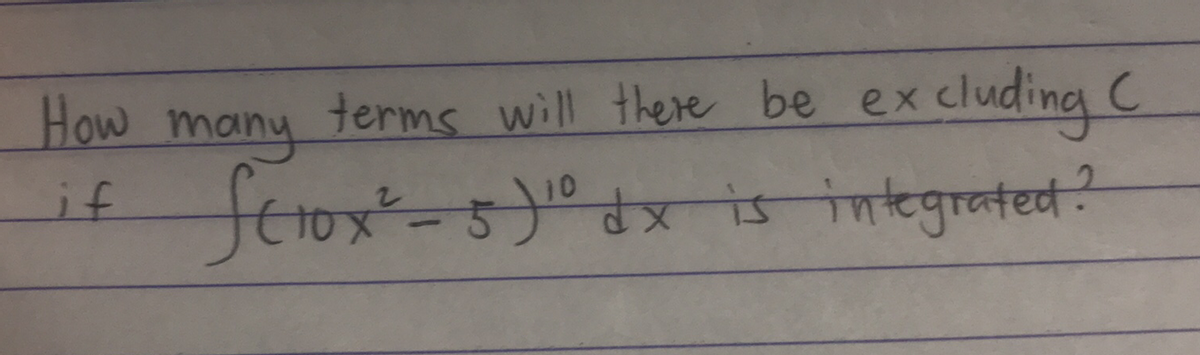 How many terms will there be excluding C
if ∫(10x² - 5)¹⁰ dx is integrated?